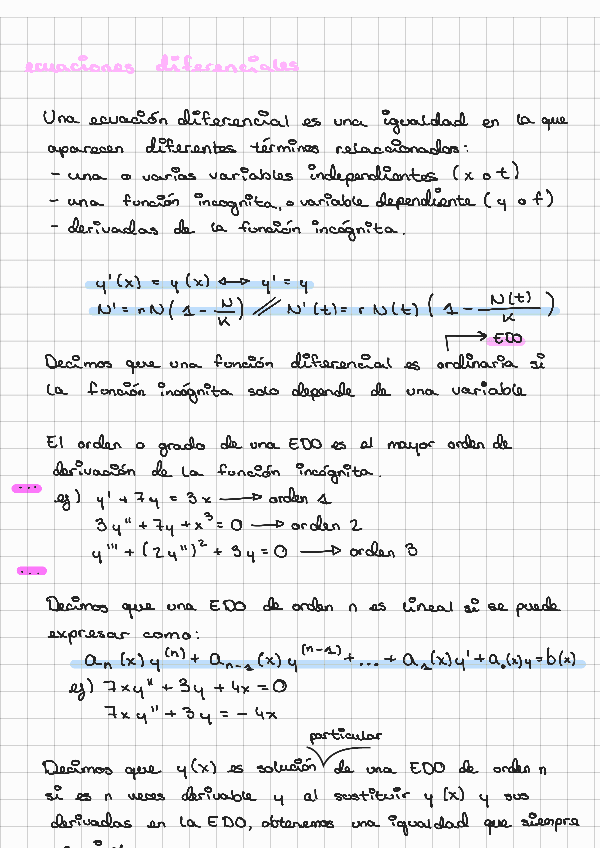 ecuaciones diferenciales
Una ecuación diferencial es una igualdad en la que
aparecen diferentes términos relaccionados:
- una o varias variables independientes (x o t)
- una función incognita, o variable dependiente (y o f)
- derivadas de la función incógnita.
y'(x) = y(x) ↔ y' = y
N' = rN(1 - N/K) // N'(t) = rN(t) (1 - N(t)/K)
→ EDO
Decimos que una función diferencial es ordinaria si
la función incógnita solo depende de una variable
El orden o grado de una EDO es el mayor orden de
derivación de la función incógnita.
...
ej) y' + 7y = 3x → orden 1
3y'' + 7y + x³ = 0 → orden 2
y''' + (2y'')² + 3y = 0 → orden 3
...
Decimos que una EDO de orden n es lineal si se puede
expresar como:
aₙ(x)y⁽ⁿ⁾ + aₙ₋₁(x)y⁽ⁿ⁻¹⁾ + ... + a₁(x)y' + a₀(x)y = b(x)
ej) 7xy'' + 3y + 4x = 0
7xy'' + 3y = -4x
particular
Decimos que y(x) es solución de una EDO de orden n
si es n veces derivable y al sustituir y(x) y sus
derivadas en la EDO, obtenemos una igualdad que siempre